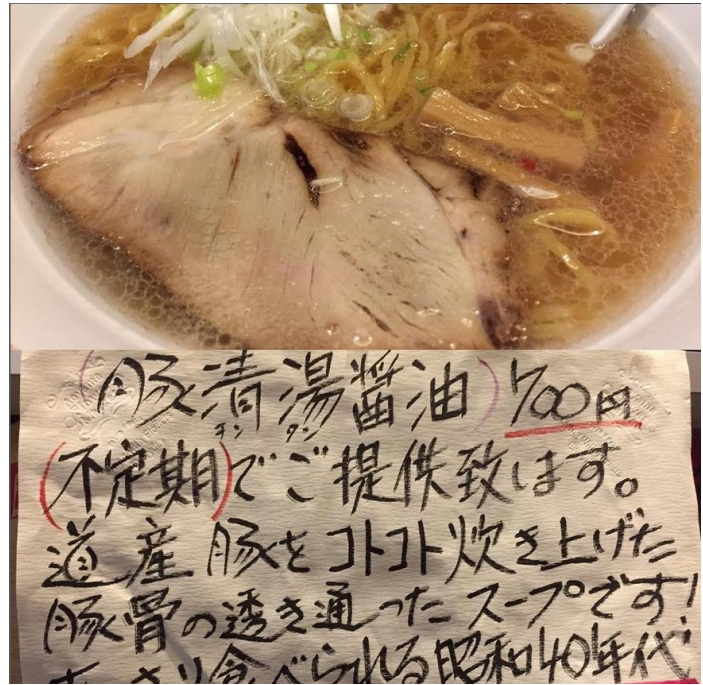 (豚清湯醤油) 700円
チン タン
(不定期)でご提供致します。
道産豚をコトコト炊き上げた
豚骨の透き通ったスープです!
あっさり食べられる昭和40年代